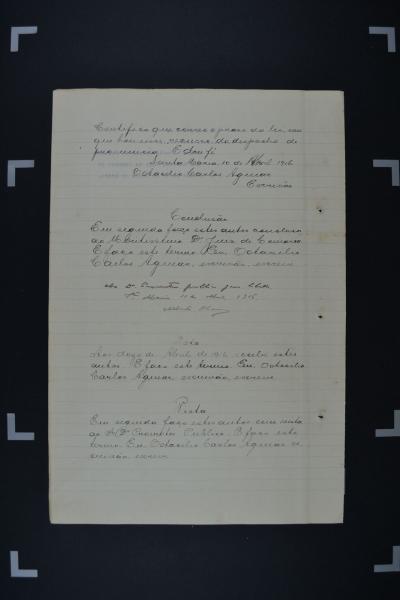 Certifico que correu o prazo da lei, sem
que houvesse recurso do despacho de
pronuncia. E dou fé
Santa Maria, 10 de Abril 1916
Octacilio Carlos Aguiar
Escrivão
Conclusão
Em seguida faço estes autos conclusos
ao M Dr. Juiz de Comarca
E faço este termo. Eu, Octacilio
Carlos Aguiar, escrivão, escrevi
Ao Dr. Promotor publico para
Sta Maria 11 de Abril 1916
Data
Aos doze de Abril de 1916 estes
autos. E faço este termo. Eu, Octacilio
Carlos Aguiar escrivão, escrevi
Vista
Em seguida faço estes autos com vista
ao Dr. Promotor Publico. E faço este
termo. Eu Octacilio Carlos Aguiar es
crivão, escrevi